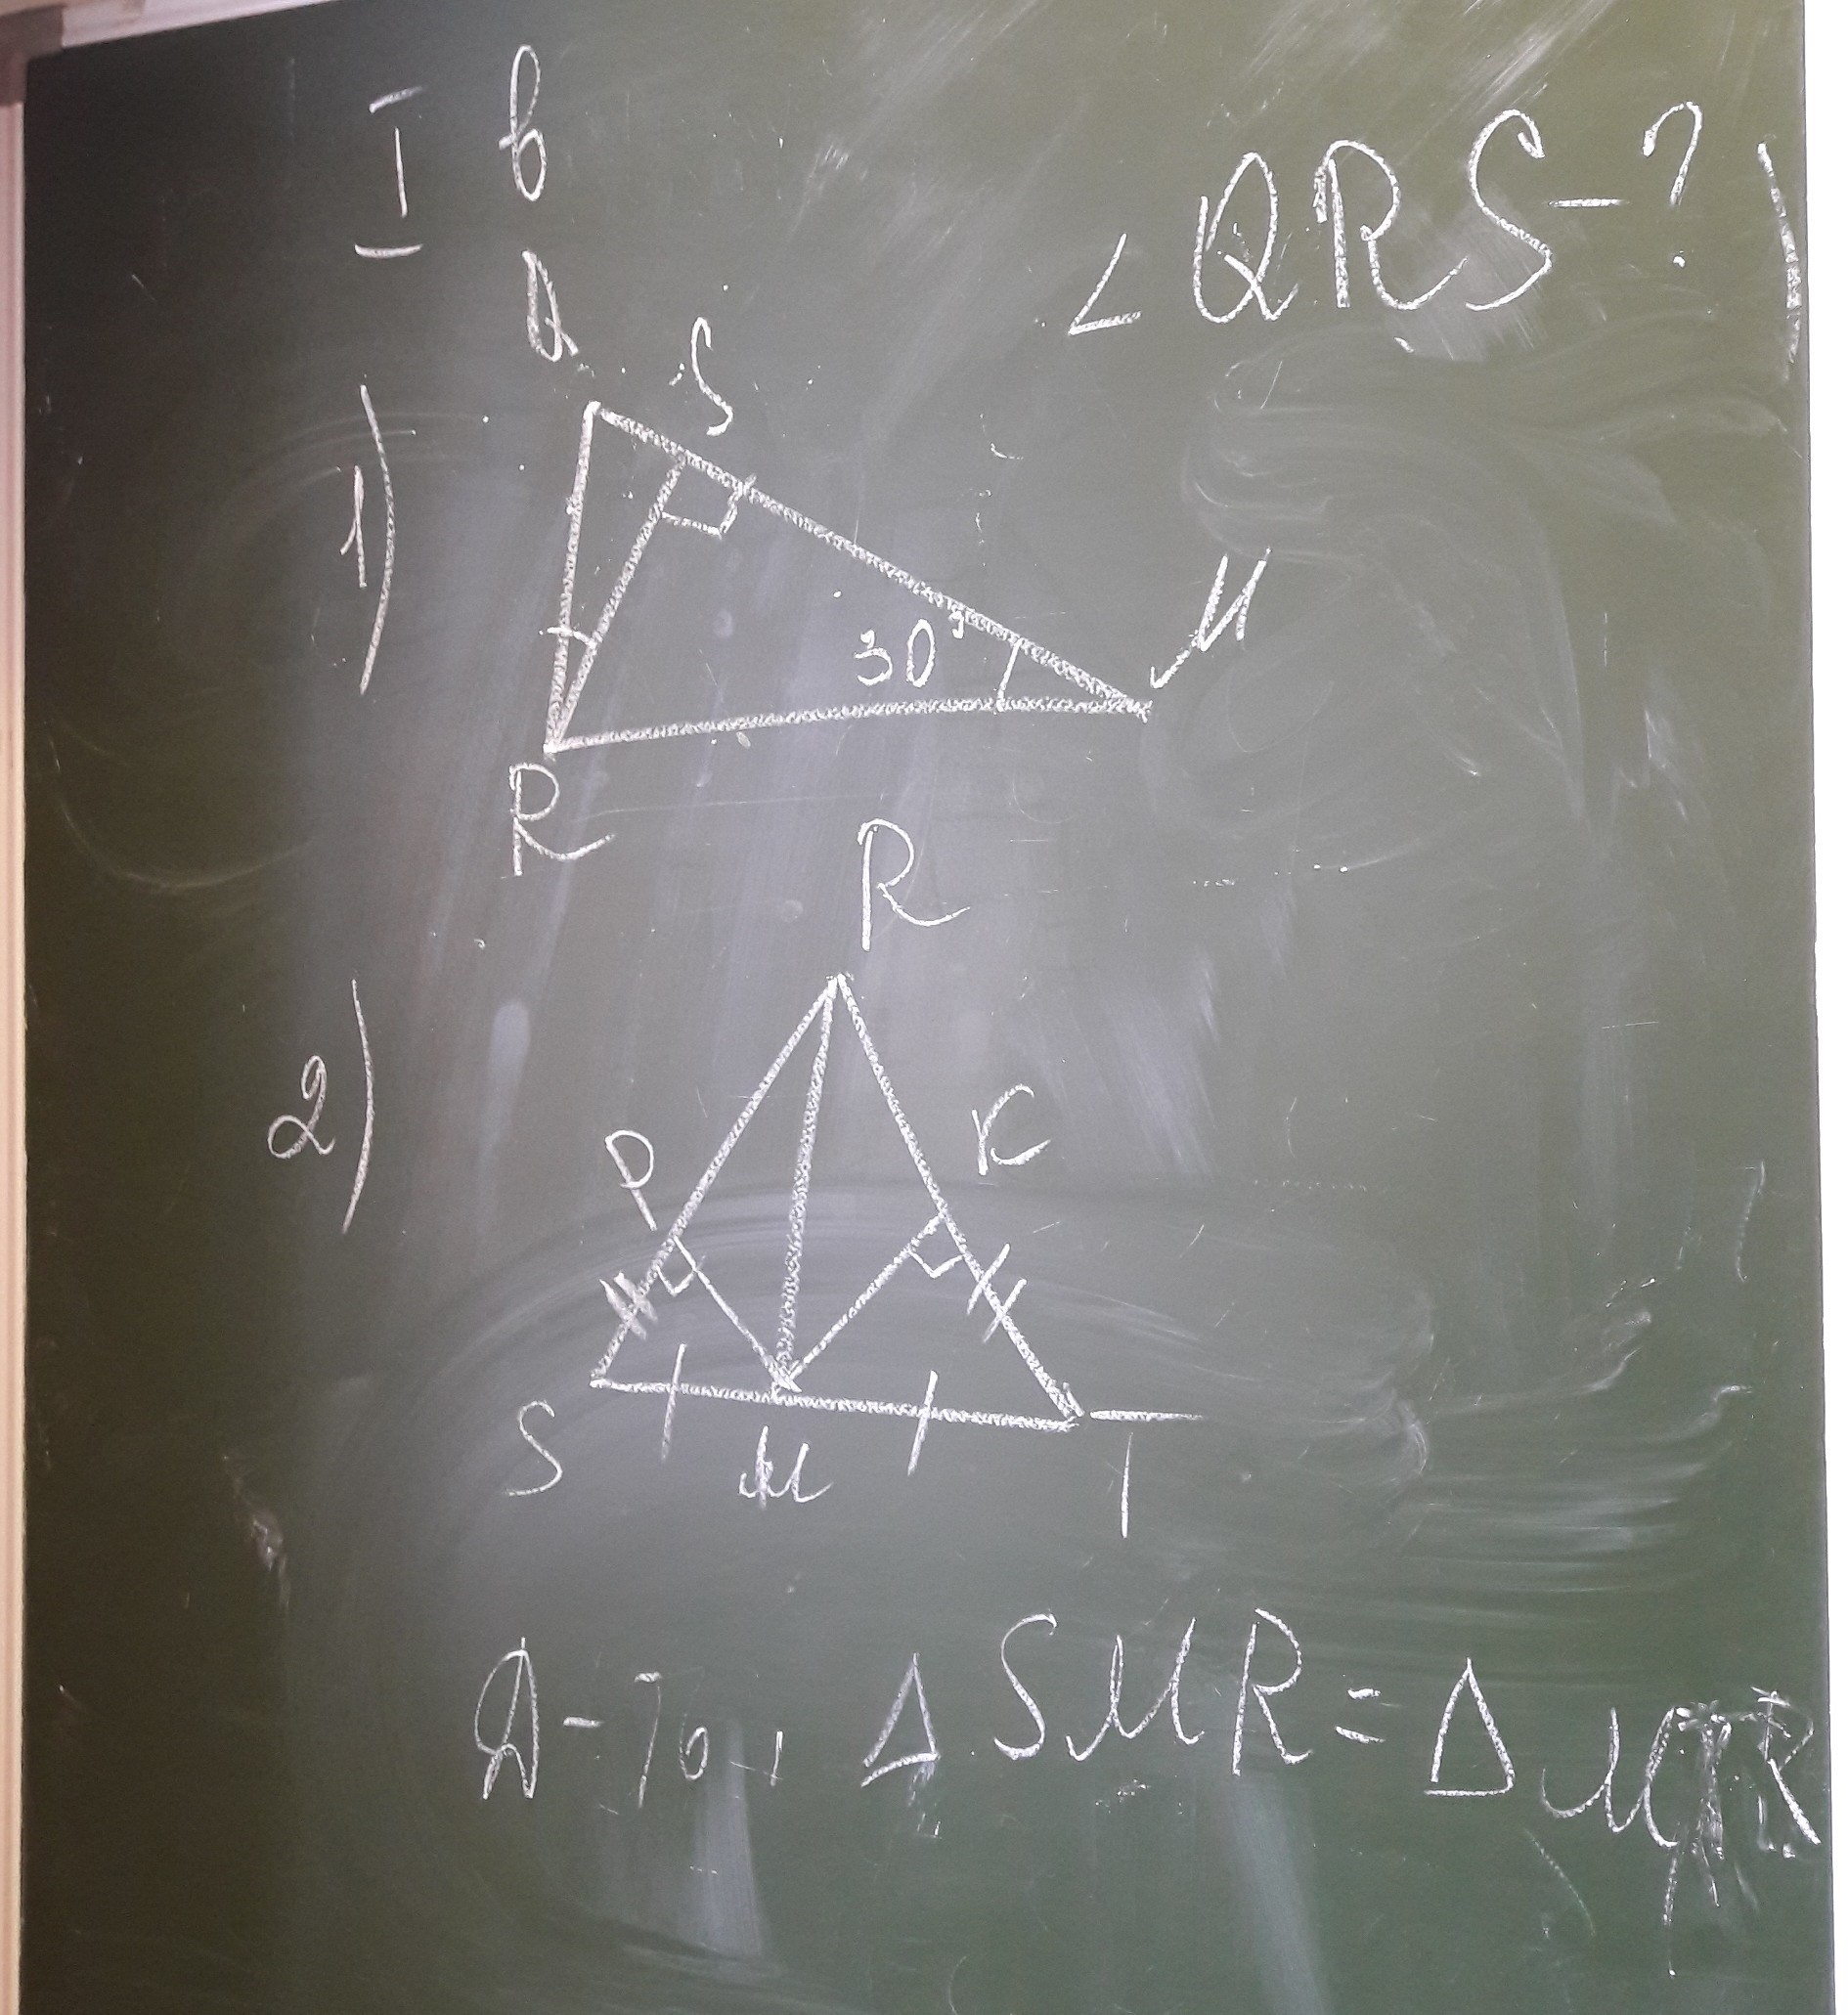 I в
∠QRS-?
1)
Q
S
30°
M
R
2)
R
P
K
S
M
T
Д-ть, Δ SMR = Δ MTR